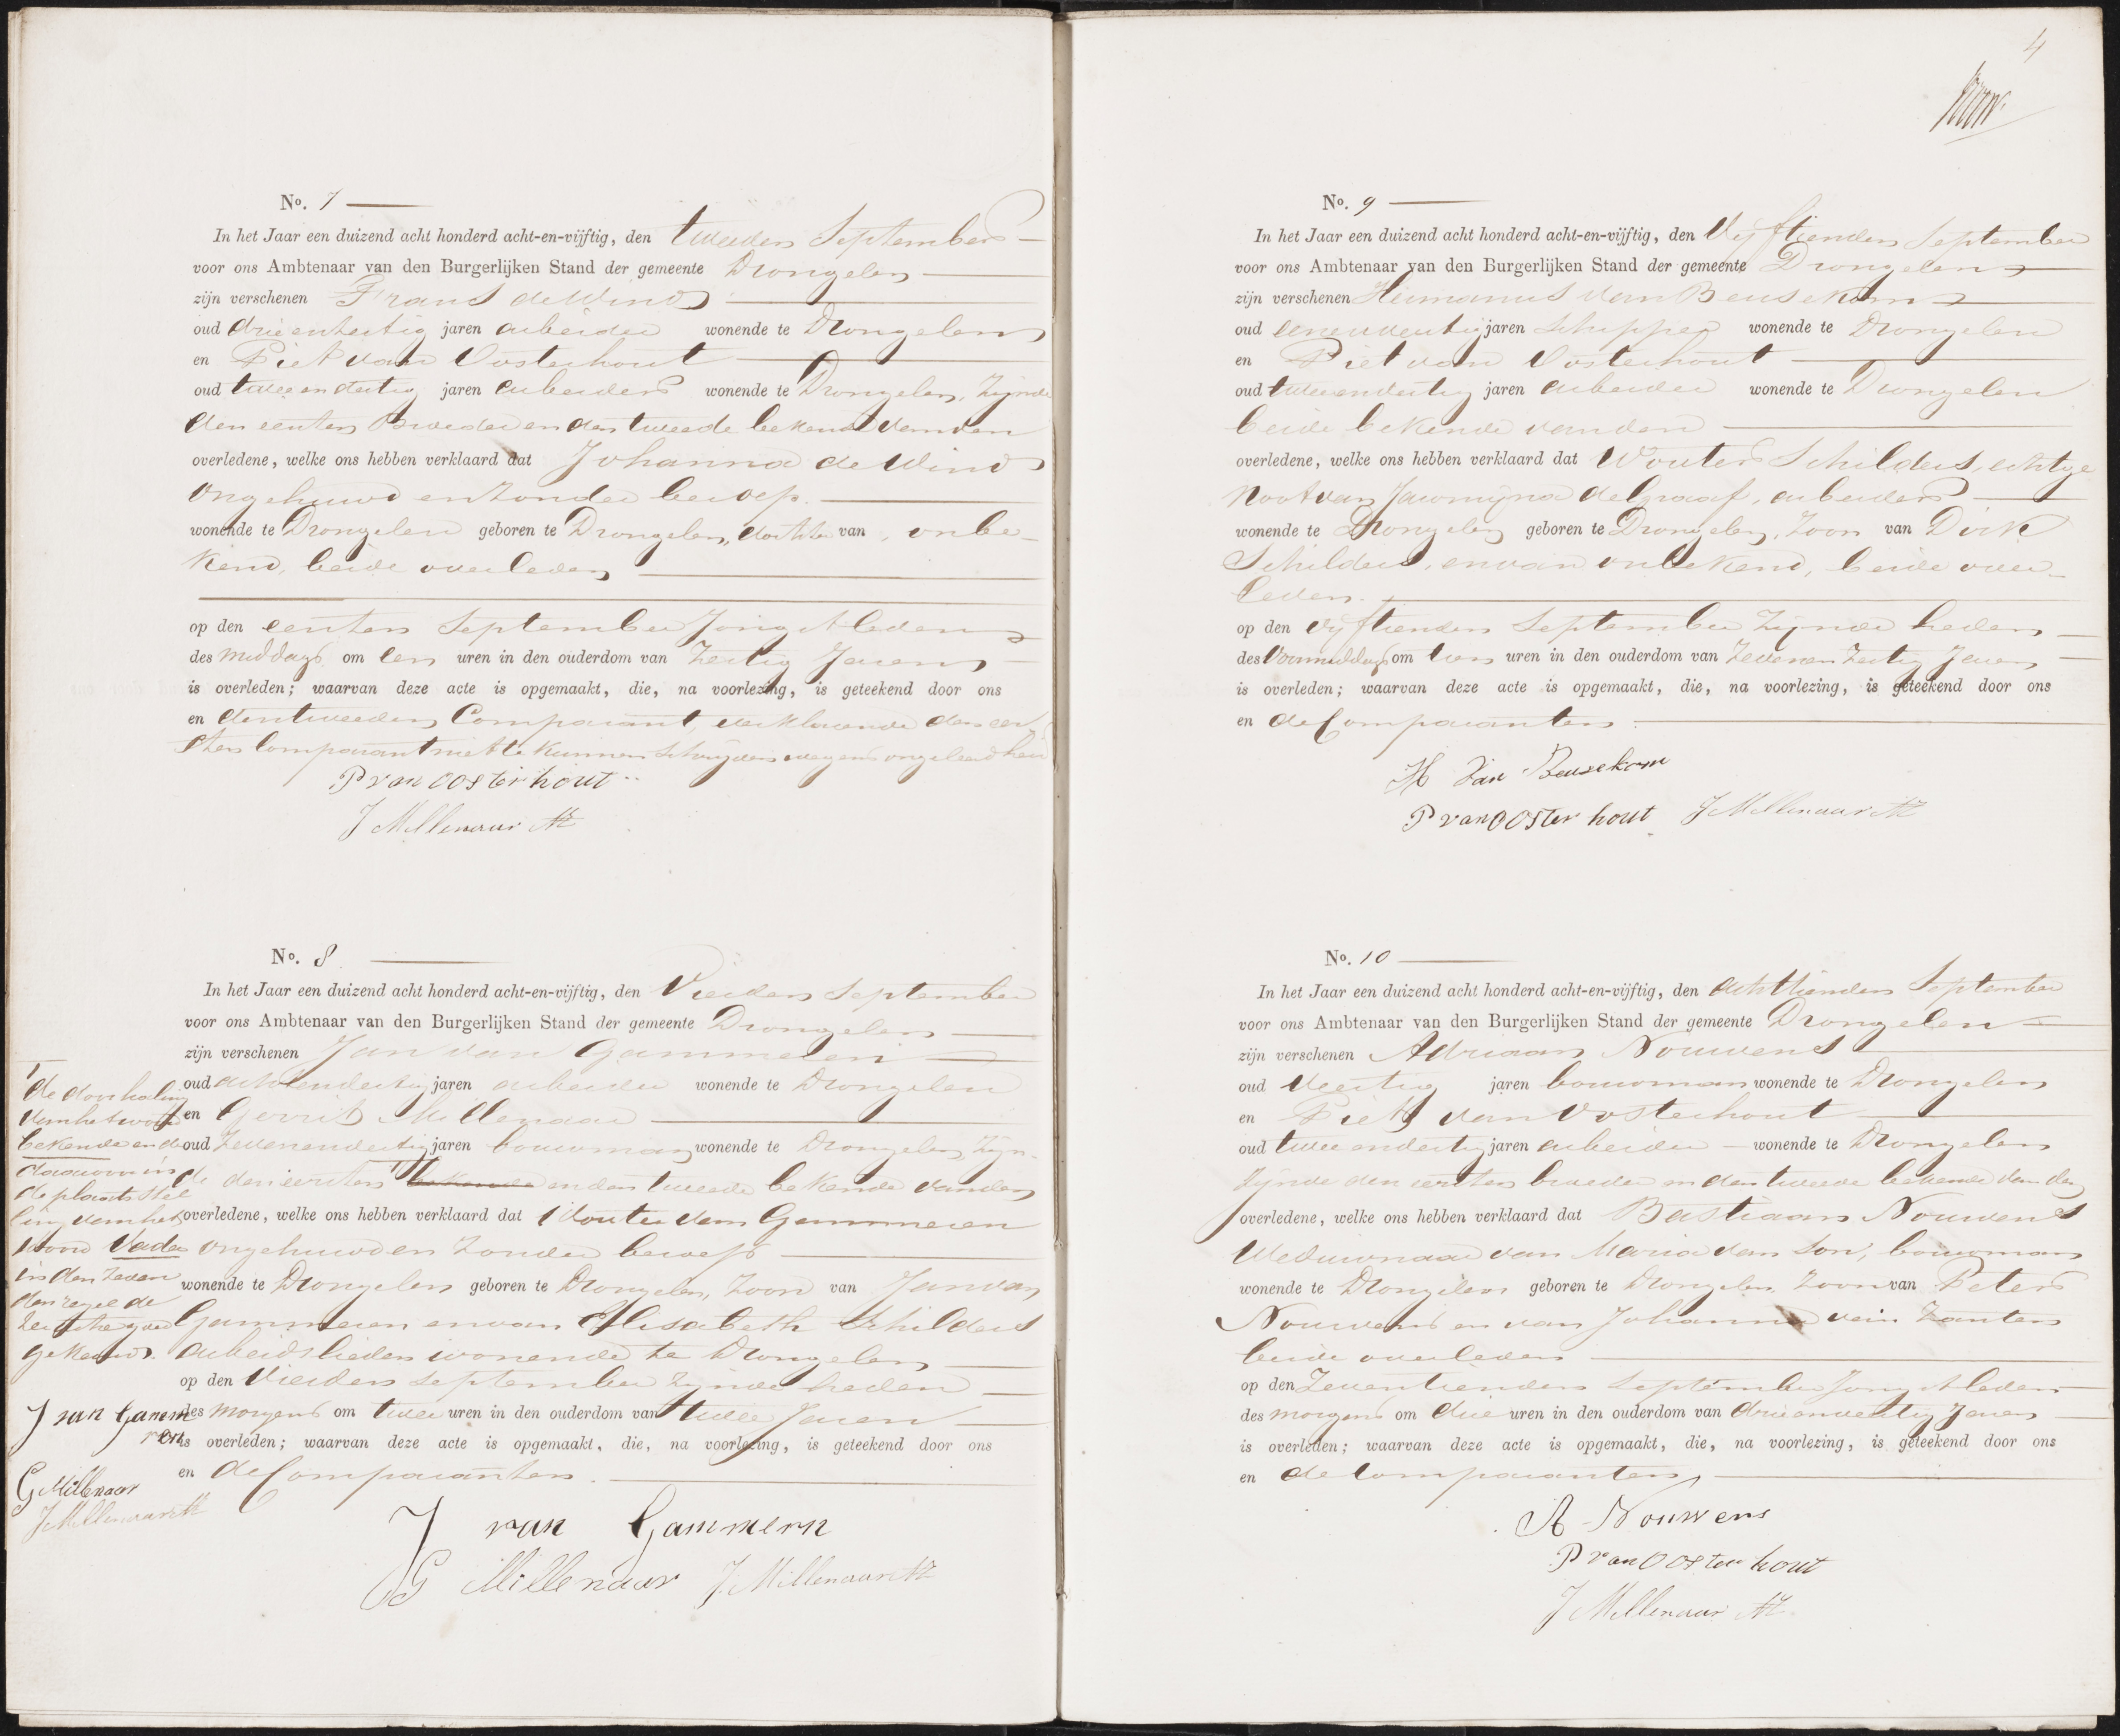 No. 7
In het Jaar een duizend acht honderd acht-en-vijftig, den tweeden September
voor ons Ambtenaar van den Burgerlijken Stand der gemeente Drongelen
zijn verschenen Frans de Wind
oud drieentertig jaren arbeider wonende te Drongelen
en Piet van Oosterhout
oud twee en dertig jaren arbeider wonende te Drongelen, zijnde
den eersten Broeder en den tweede bekend van den
overledene, welke ons hebben verklaard dat Johanna de Wind
ongehuwd en zonder beroep.
wonende te Drongelen geboren te Drongelen, dochter van onbe-
kend, beide overleden
op den eersten September jongstleden
des middags om een uren in den ouderdom van zestig Jaren
is overleden; waarvan deze acte is opgemaakt, die, na voorlezing, is geteekend door ons
en den tweeden Comparant, verklarende den eer
sten Comparant niet te kunnen schrijven wegens ongeleerdheid
P van Oosterhout
J Millenaar Az
No. 8
In het Jaar een duizend acht honderd acht-en-vijftig, den Vierden September
voor ons Ambtenaar van den Burgerlijken Stand der gemeente Drongelen
zijn verschenen Jan van Gammeren
oud achtendertig jaren arbeider wonende te Drongelen
en Gerrit Millenaar
oud zevenendertig jaren bouwman wonende te Drongelen, zijn-
de den eersten bekende en den tweede bekende van den
overledene, welke ons hebben verklaard dat Wouter van Gammeren
ongehuwd en zonder beroep
wonende te Drongelen geboren te Drongelen, zoon van Jan van
Gammeren en van Elisabeth Schilders
arbeidslieden wonende te Drongelen
op den Vierden September zijnde heden
des morgens om twee uren in den ouderdom van twee Jaren
is overleden; waarvan deze acte is opgemaakt, die, na voorlezing, is geteekend door ons
en de Comparanten.
J van Gammern
G Millenaar J. Millenaar Az
de doorhaling
van het woord
bekende en de
daarvoor in
de plaats stel
ling van het
woord Vader
in den zeven
den regel de
zer acte goed
gekeurd.
J van Gamme
ren
G Millenaar
J Millenaar Az
4
No. 9
In het Jaar een duizend acht honderd acht-en-vijftig, den Vijftienden September
voor ons Ambtenaar van den Burgerlijken Stand der gemeente Drongelen
zijn verschenen Hermanus van Beusekom
oud eenenveertig jaren Schipper wonende te Drongelen
en Piet van Oosterhout
oud tweeendertig jaren arbeider wonende te Drongelen
beide bekende van den
overledene, welke ons hebben verklaard dat Wouter Schilders, echtge
noot van Jacomijna de Graaf, arbeider
wonende te Drongelen geboren te Drongelen, zoon van Dirk
Schilders, en van onbekend, beide over-
leden.
op den vijftienden September zijnde heden
des Voormiddags om tien uren in den ouderdom van zevenenzestig Jaren
is overleden; waarvan deze acte is opgemaakt, die, na voorlezing, is geteekend door ons
en de Comparanten
H Van Beusekom
P van Oosterhout J Millenaar Az
No. 10
In het Jaar een duizend acht honderd acht-en-vijftig, den achttienden September
voor ons Ambtenaar van den Burgerlijken Stand der gemeente Drongelen
zijn verschenen Adriaan Nouwens
oud veertig jaren bouwman wonende te Drongelen
en Piet van Oosterhout
oud tweeendertig jaren arbeider wonende te Drongelen
zijnde den eersten broeder en den tweede bekende van den
overledene, welke ons hebben verklaard dat Bastiaan Nouwens
Weduwnaar van Maria van Son, bouwman
wonende te Drongelen geboren te Drongelen zoon van Peter
Nouwens en van Johanna van Zanten
beide overleden
op den Zeventienden September jongstleden
des morgens om drie uren in den ouderdom van drieenveertig Jaren
is overleden; waarvan deze acte is opgemaakt, die, na voorlezing, is geteekend door ons
en de Comparanten
A Nouwens
P van Oosterhout
J Millenaar Az.